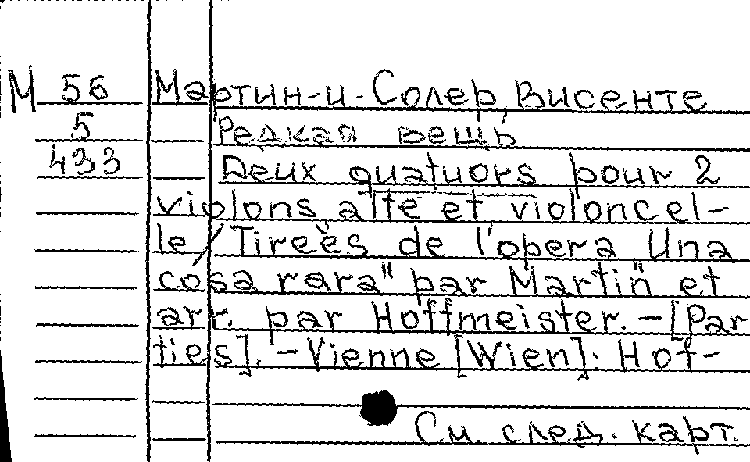 М 56 Мартин-и-Солер, Висенте
5 Редкая вещь
433 Deux quatuors pour 2
violons, alte et violoncel-
le / Tirеès de l'opera Una
cosa rara" par Martin et
arr. par Hoffmeister. - [Par
ties]. - Vienne [Wien]: Hof-
См. след. карт.